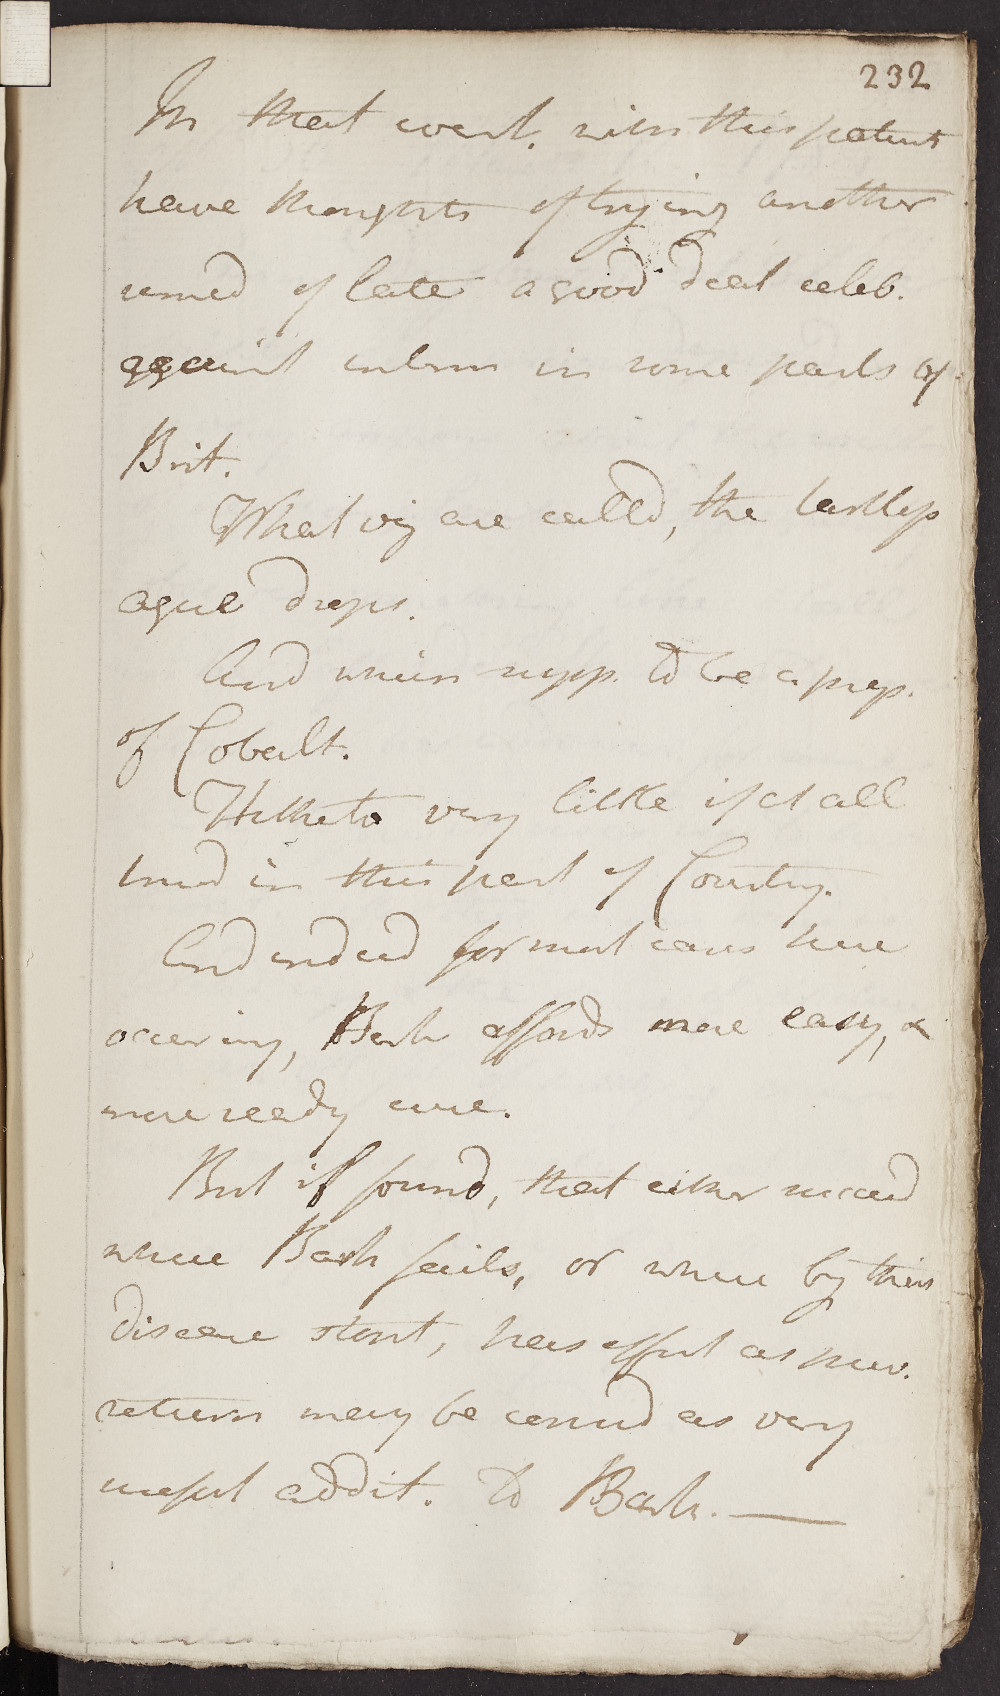 232
In that event. with this patient
have thoughts of trying another
remed of late a good deal celeb.
against interm in some parts of
Brit.
What vig are called, the tastless
ague drops.
And which supp. to be a prep.
of Cobalt.
Hitherto very little if at all
tried in this part of Country.
And indeed for most cases here
occuring, Bark affords more easy, &
more ready cure.
But if found, that either succeed
where Bark fails, or where by this
disease stopt, has effect as prev.
return may be consid as very
useful addit. to Bark. —